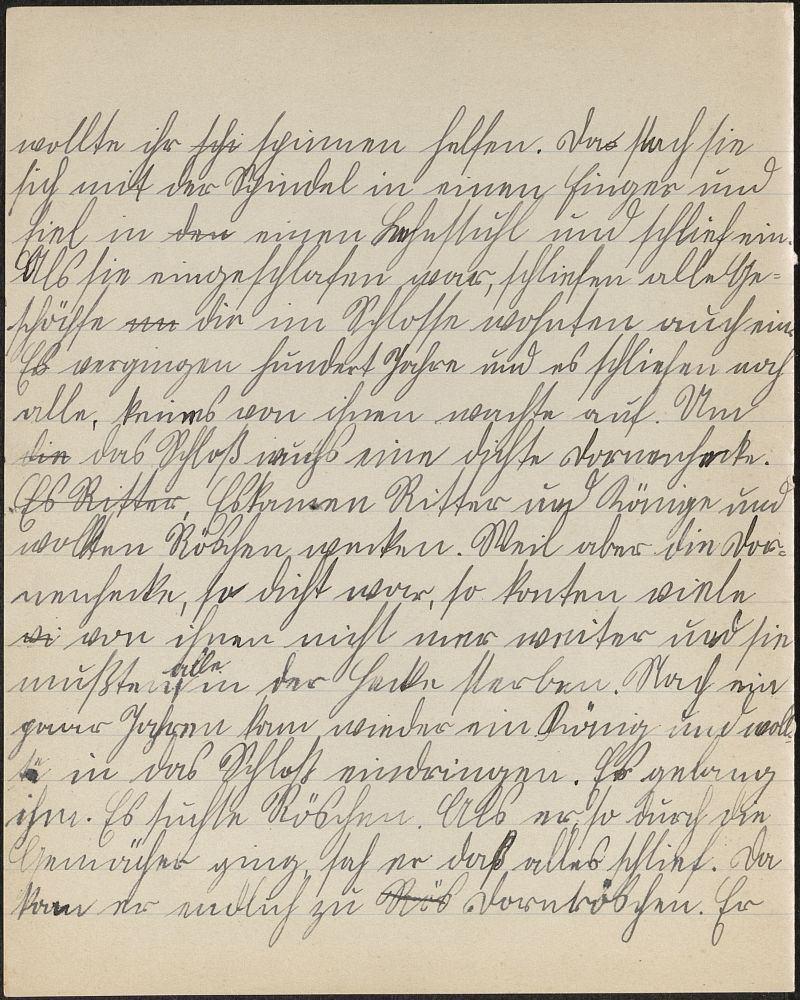 wollte ihr schi spinnen helfen. Da stach sie
sich mit der Spindel in einen Finger und
fiel in den einen Lehnstuhl und schlief ein.
Als sie eingeschlafen war, schliefen alle Ge=
schöpfe die im Schlosse wohnten auch ein.
Es vergingen hundert Jahre und es schliefen noch
alle, keines von ihnen wachte auf. Um
die das Schloß wuchs eine dichte Dornenhecke.
Es Ritter, Es kamen Ritter und Könige und
wollten Röschen wecken. Weil aber die Dor=
nenhecke, so dicht war, so konten viele
wi von ihnen nicht mer weiter und sie
mußten alle in der Hecke sterben. Nach ein
paar Jahren kam wieder ein König und woll=
te in das Schloß eindringen. Es gelang
ihm. Es suchte Röschen. Als er so durch die
Gemächer ging, sah er daß alles schlief. Da
kam er endlich zu Rös Dornröschen. Er